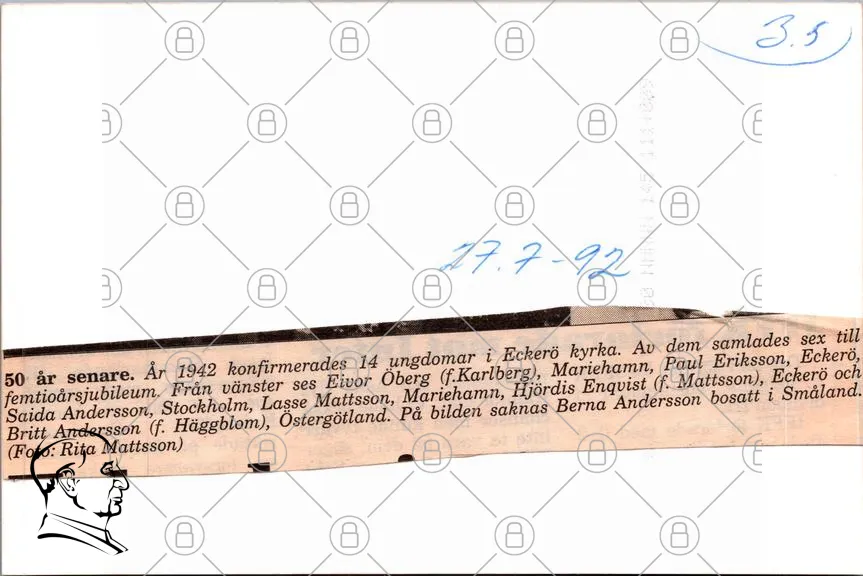 3.5
27.7-92
50 år senare. År 1942 konfirmerades 14 ungdomar i Eckerö kyrka. Av dem samlades sex till
femtioårsjubileum. Från vänster ses Eivor Öberg (f.Karlberg), Mariehamn, Paul Eriksson, Eckerö,
Saida Andersson, Stockholm, Lasse Mattsson, Mariehamn, Hjördis Enquist (f. Mattsson), Eckerö och
Britt Andersson (f. Häggblom), Östergötland. På bilden saknas Berna Andersson bosatt i Småland.
(Foto: Rita Mattsson)